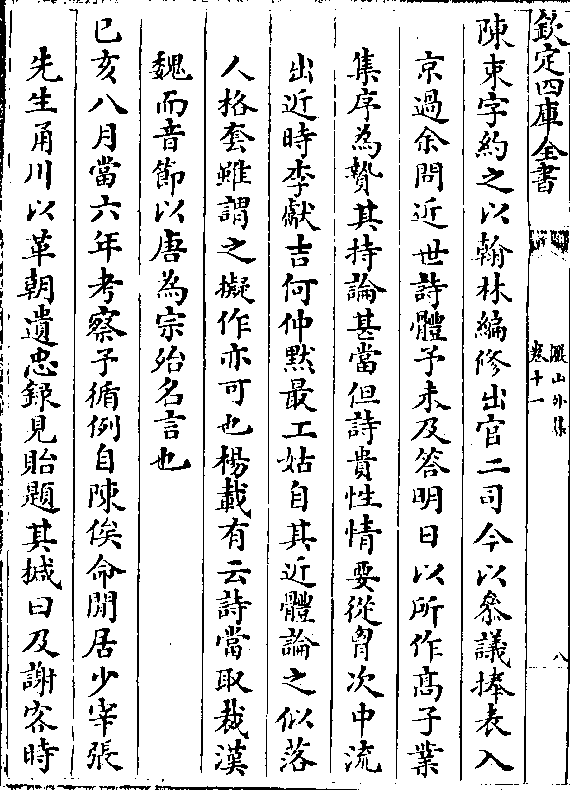 欽定四庫全書
儼山外集
卷十一
八
陳束字約之以翰林編修出官二司今以叅議捧表入
京過余問近世詩體予未及答明日以所作髙子業
集序為贄其持論甚當但詩貴性情要從胷次中流
出近時李獻吉何仲黙最工姑自其近體論之似落
人格套雖謂之擬作亦可也楊載有云詩當取裁漢
魏而音節以唐為宗殆名言也
己亥八月當六年考察予循例自陳俟命閒居少宰張
先生甬川以革朝遺忠錄見貽題其掝曰及謝客時